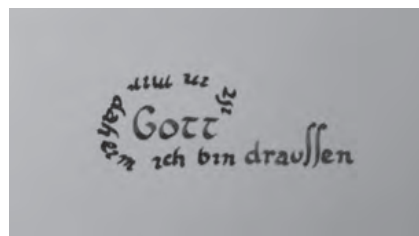 Gott ist in mir daher ich bin drauſſen